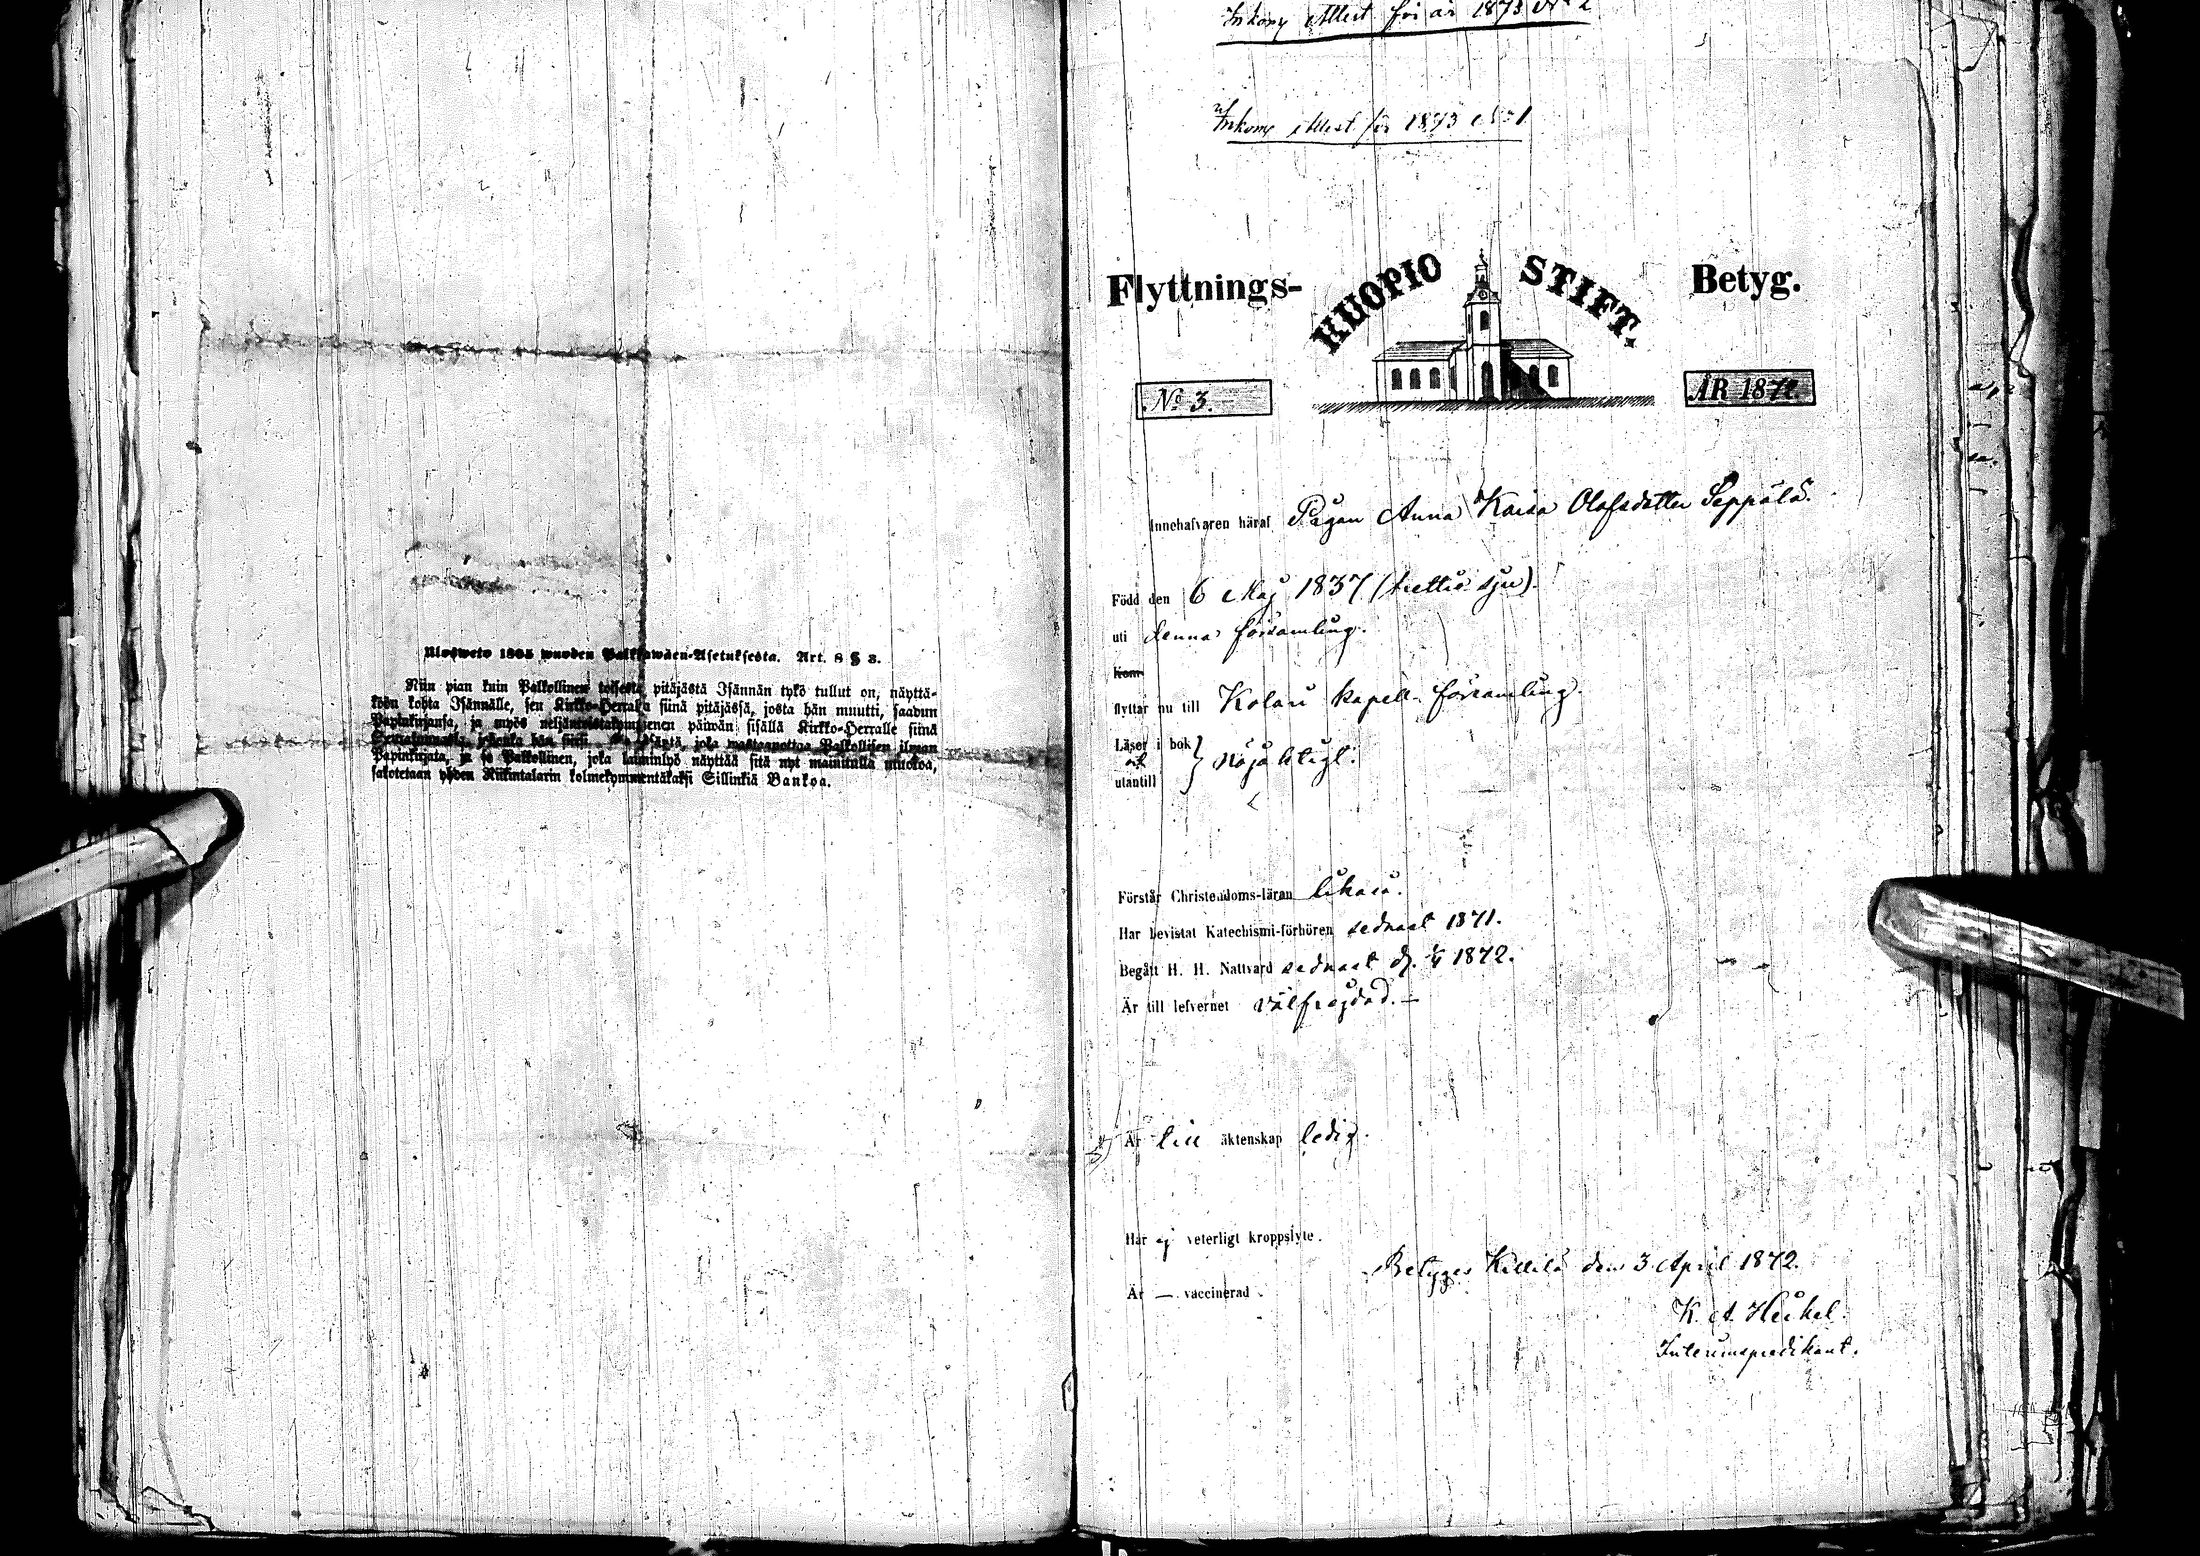 Ulosweto 1805 wuoden Palkkawäen-Asetuksesta. Art. 8 § 3.
Niin pian kuin Palkollinen toisesta pitäjästä Isännän tykö tullut on, näyttä-
köön kohta Isännälle, sen Kirkko-Herralta siinä pitäjässä, josta hän muutti, saadun
Papinkirjansa, ja myös neljäntoistakymmenen päiwän sisällä Kirkko-Herralle siinä
joka wastaanottaa Palkollisen ilman
Papinkirjata, ja se Palkollinen, joka laiminlyö näyttää sitä nyt mainitulla muotoa,
sakotetaan yhden Riikintalarin kolmekymmentäkaksi Sillinkiä Bankoa.
Inkomg Attest för år 1873 No 2
Inkomg Attest för 1873 No 1
Flyttnings- KUOPIO STIFT. Betyg.
No 3. ÅR 1872.
Innehafvaren häraf Pigan Anna Kaisa Olofsdotter Seppälä.
Född den 6 Maj 1837 (trettio sju).
uti denna församling.
Kom
flyttar nu till Kolari kapell-församling.
Läser i bok
och
utantill
nöjaktigt.
Förstår Christendoms-läran likaså.
Har bevistat Katechismi-förhören sednast 1871.
Begått H. H. Nattvard sednast d. 1/4 1872.
Är till lefvernet välfrejdad. —
Är till äktenskap ledig.
Har ej veterligt kroppslyte.
Betygas Kittilä den 3 April 1872.
Är — vaccinerad.
K. A. Heikel.
Interimspredikant.